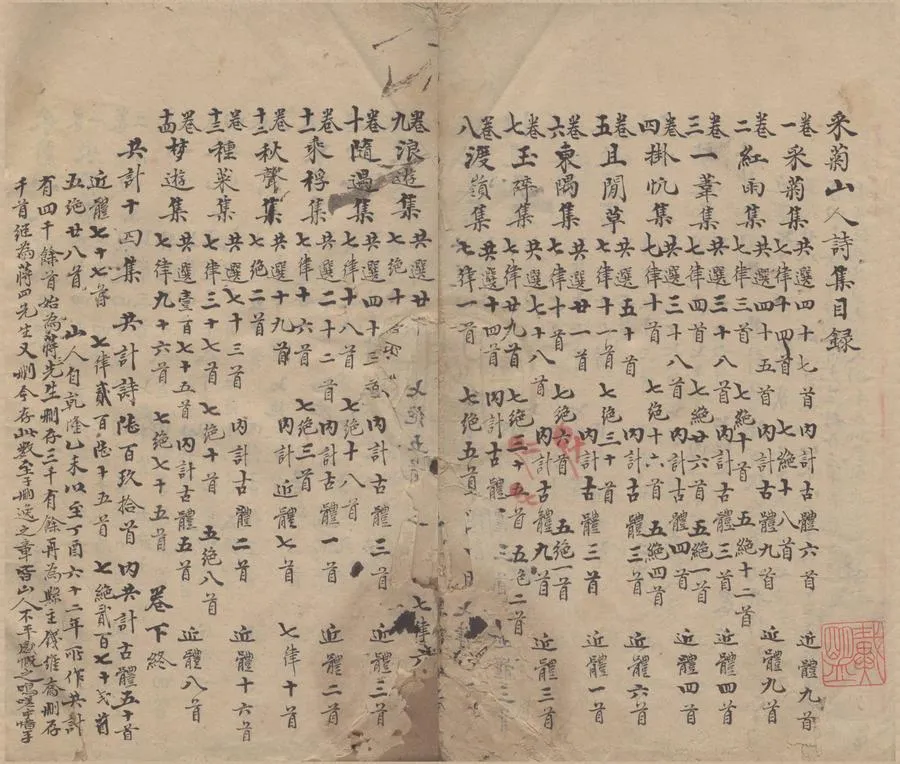 采菊山人詩集目録
卷一 采菊集 共選四十七首 內計古體六首 近體九首
七律十四首 七絕十八首
卷二 紅雨集 共選四十五首 內計古體九首 近體九首
七律三首 七絕十首 五絕十二首
卷三 一葦集 共選三十八首 內計古體首 近體四首
七律四首 七絕廿六首 五絕一首
卷四 掛帆集 共選三十八首 內計古體四首 近體四首
七律十首 七絕十六首 五絕四首
卷五 且閒草 共選五十首 內計古體三首 近體六首
七律十一首 七絕三十首
卷六 東隅集 共選廿一首 內計古體三首 近體一首
七律十首 七絕六首 五絕一首
卷七 玉碎集 共選七十八首 內計古體九首 近體三首
七律廿九首 七絕三十五首 五絕二首
卷八 渡嶺集 共選十四首 內計古體三首
七律一首 七絕五首
卷九 浪遊集 共選廿
七絕十 七絕五首 七律六
卷十 隨過集 共選四十三首 內計古體三首 近體三首
七律十八首 七絕十八首
卷十一 乘桴集 共選二十二首 內計古體一首 近體二首
七律十六首 七絕三首
卷十二 秋聲集 共選十九首 內計近體七首 七律十首
七絕二首
卷十三 種菜集 共選七十三首 內計古體二首 近體十六首
七律三十七首 七絕十首 五絕八首
卷十四 梦遊集 共選壹百七十五首 內計古體五首 近體八首
七律九十六首 七絕七十五首 卷下終
共計十四集 共計詩陸百玖拾首 內共計古體五十首
近體七十七首 七律貳百陸十五首 七絕貳百七十弍首
五絕廿八首 山人自乾隆乙未以至丁酉六十二年所作共計
有四千餘首始為蔣先生刪存三千有餘再為縣主錢維喬刪存
千首繼為蔣四先生又刪今存此數至于刪選之章皆山人不平感慨之鳴嗟嗟